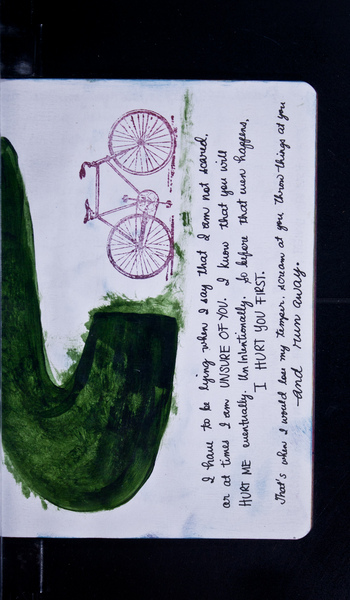 I have to be lying when I say that I am not scared.
or at times I am UNSURE OF YOU. I know that you will
HURT ME eventually. UnIntentionally. So before that even happens,
I HURT YOU FIRST.
That's when I would lose my temper. scream at you throw things at you
-and run away.